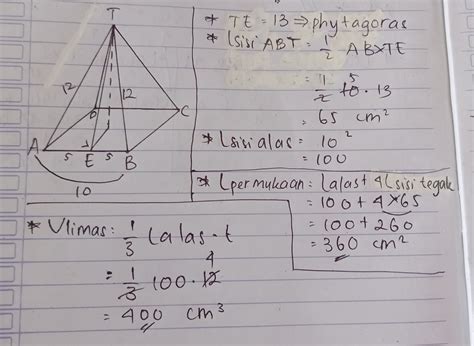 T
12
12
D
C
A
5
E
5
B
10
* TE = 13 ⇒ phytagoras
* Lsisi ABT = 1/2 AB×TE
= 1/2 10 5 · 13
= 65 cm²
* Lsisi alas = 10²
= 100
* Lpermukaan: Lalas + 4Lsisi tegak
= 100 + 4 × 65
= 100 + 260
= 360 cm²
* Vlimas: 1/3 Lalas · t
= 1/3 100 · 12 4
= 400 cm³